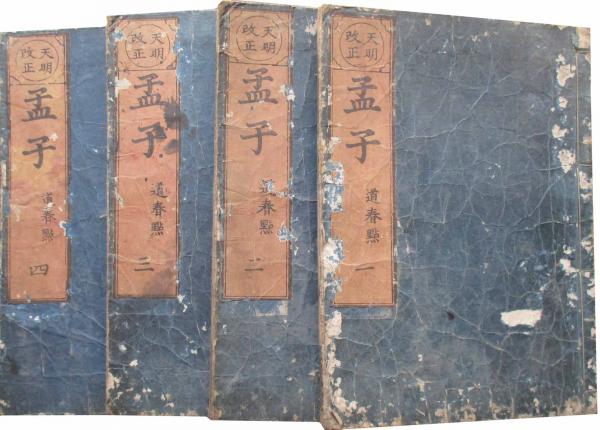 天明
改正
孟子
道春點
一
天明
改正
孟子
道春點
二
天明
改正
孟子
道春點
三
天明
改正
孟子
道春點
四